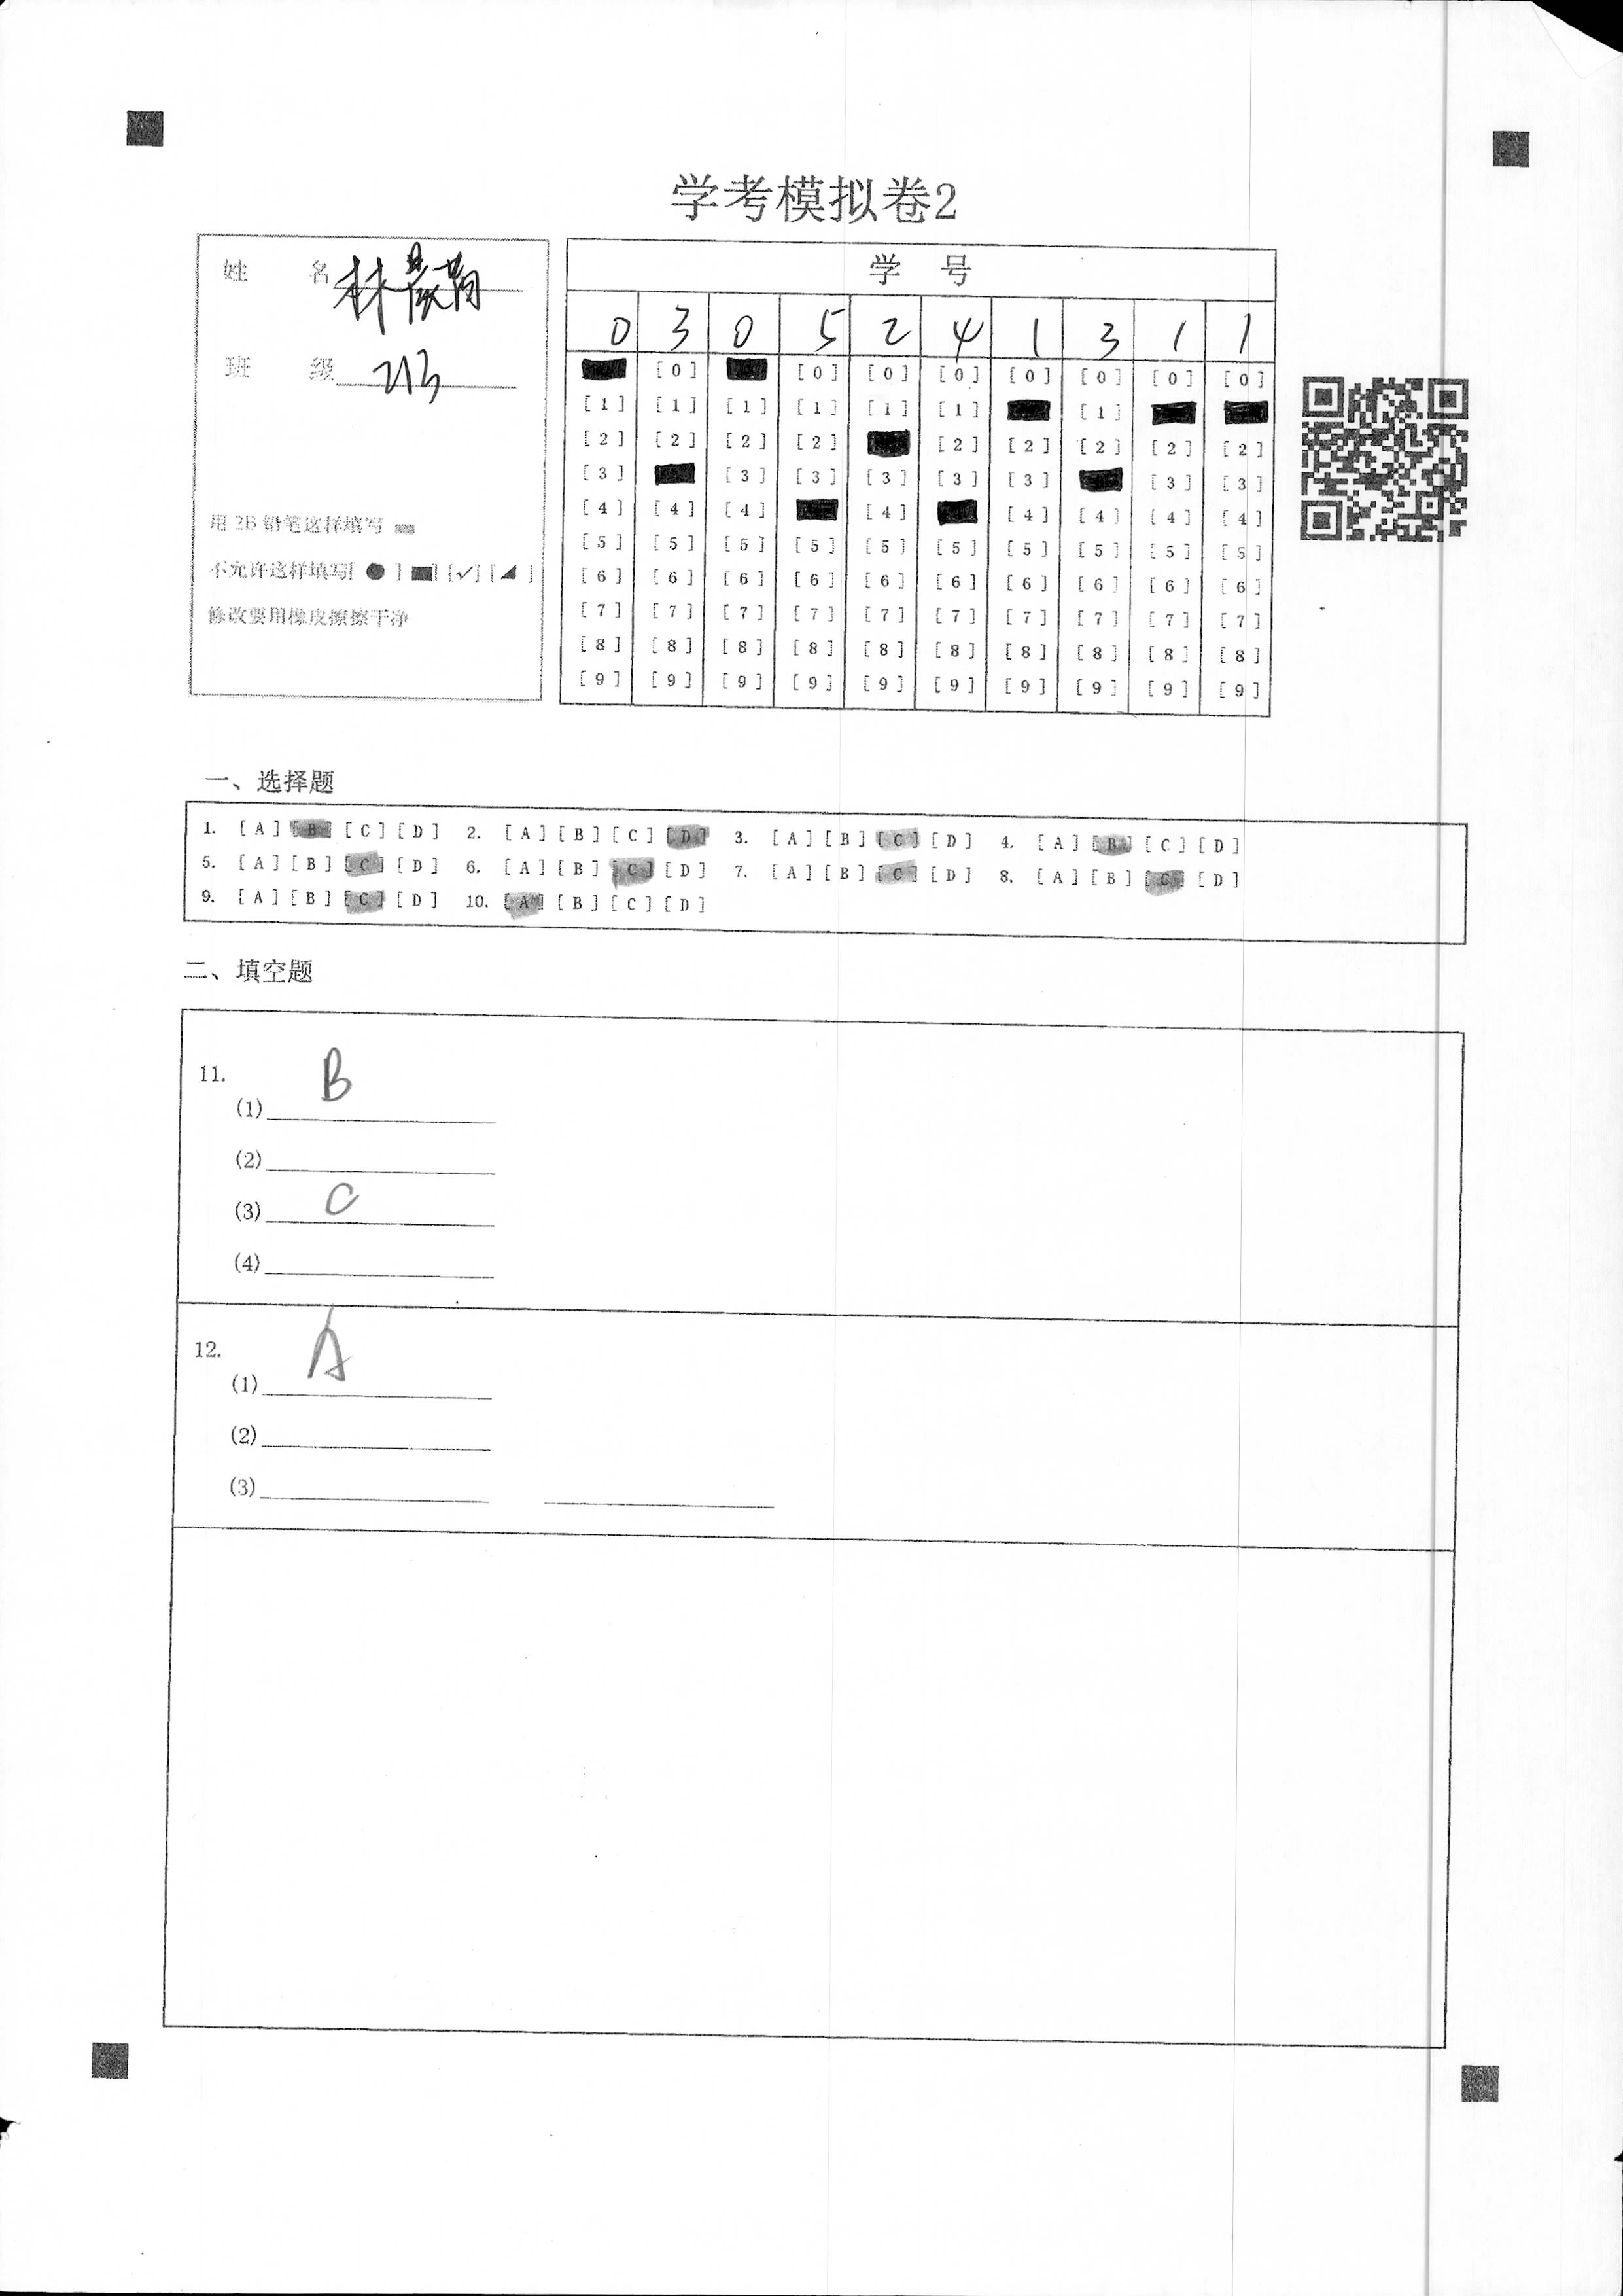 学考模拟卷2
姓 名 林
班 级 213
用 2B 铅笔这样填写
不允许这样填写[ ● ] [■] [✓] [◢ ]
修改要用橡皮擦擦干净
学 号
0 3 0 5 2 4 1 3 1 1
[0] [0] [0] [0] [0] [0] [0] [0]
[1] [1] [1] [1] [1] [1] [1]
[2] [2] [2] [2] [2] [2] [2] [2] [2]
[3] [3] [3] [3] [3] [3] [3] [3]
[4] [4] [4] [4] [4] [4] [4] [4]
[5] [5] [5] [5] [5] [5] [5] [5] [5] [5]
[6] [6] [6] [6] [6] [6] [6] [6] [6] [6]
[7] [7] [7] [7] [7] [7] [7] [7] [7] [7]
[8] [8] [8] [8] [8] [8] [8] [8] [8] [8]
[9] [9] [9] [9] [9] [9] [9] [9] [9] [9]
一、选择题
1. [A] [B] [C] [D] 2. [A] [B] [C] [D] 3. [A] [B] [C] [D] 4. [A] [B] [C] [D]
5. [A] [B] [C] [D] 6. [A] [B] [C] [D] 7. [A] [B] [C] [D] 8. [A] [B] [C] [D]
9. [A] [B] [C] [D] 10. [A] [B] [C] [D]
二、填空题
11.
(1) B
(2)
(3) C
(4)
12.
(1) A
(2)
(3)